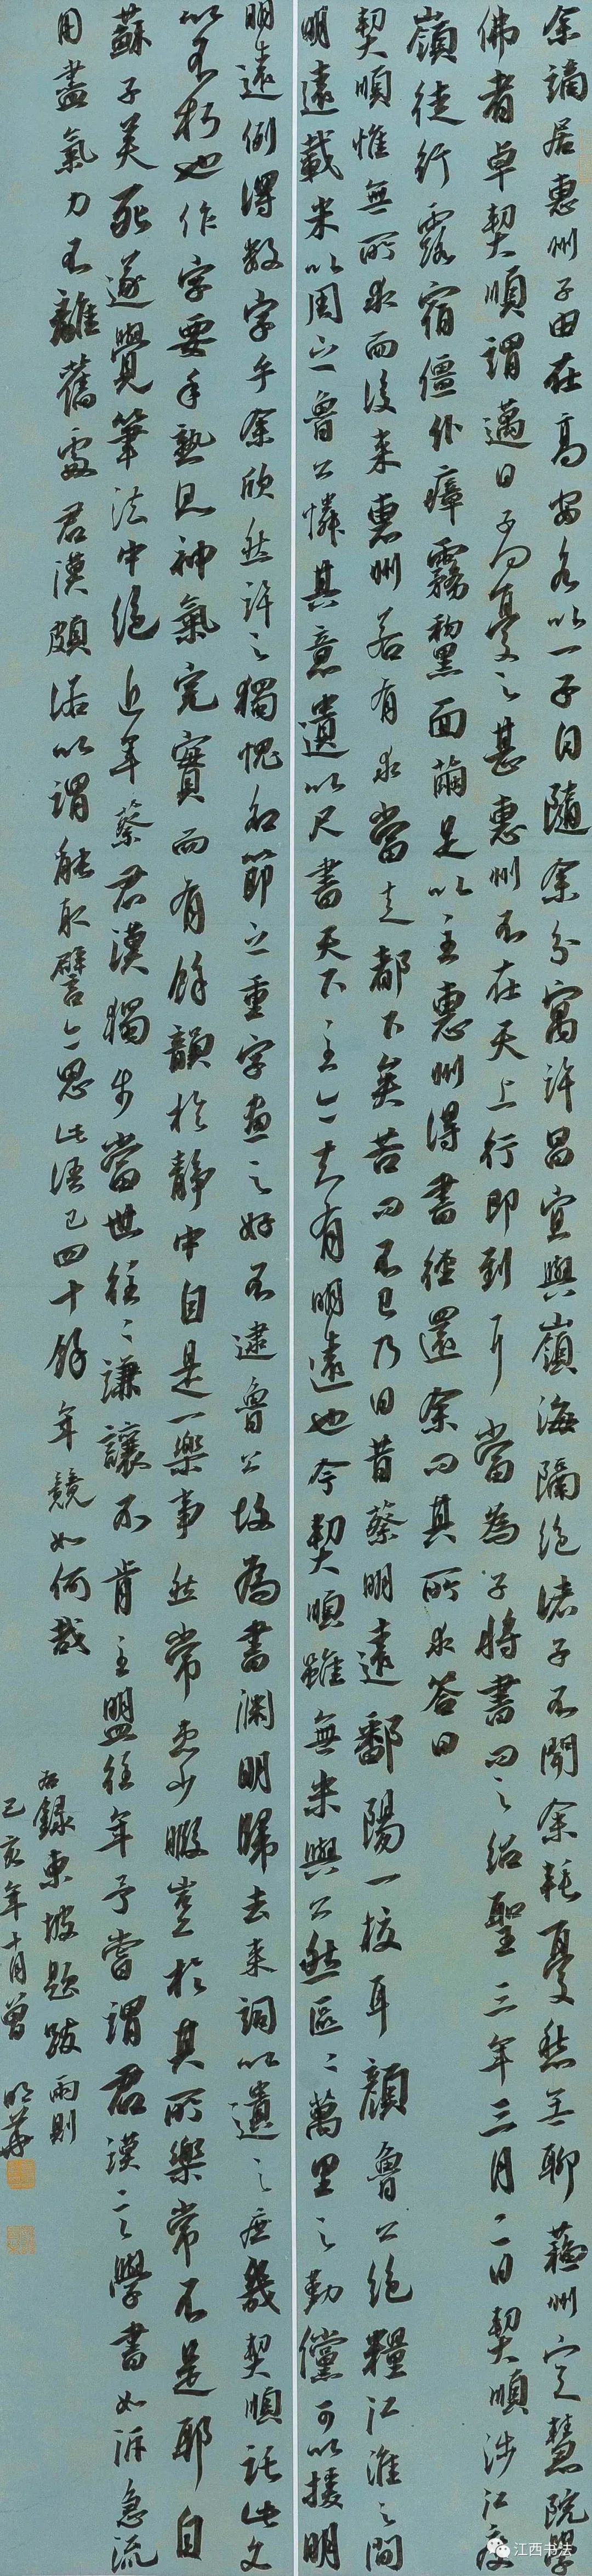 余謫居惠州子由在高安各以一子自隨余分寓許昌宜興嶺海隔絕諸子不聞余耗憂愁無聊蘇州定慧院學
佛者卓契順謂邁曰子何憂之甚惠州不在天上行即到耳當為子將書問之紹聖三年三月二日契順涉江度
嶺徒行露宿僵仆瘴霧黧面繭足以至惠州得書徑還余問其所求答曰
契順惟無所求而後來惠州若有求當走都下矣苦問不已乃曰昔蔡明遠鄱陽一校耳顏魯公絕糧江淮之間
明遠載米以周之魯公憐其意遺以尺書天下至今知有明遠也今契順雖無米與公然區〻萬里之勤儻可以援明
明遠例得數字乎余欣然許之獨愧名節之重字畫之好不逮魯公故為書淵明歸去來詞以遺之庶幾契順託此文
以不朽也作字要手熟則神氣完實而有餘韻於靜中自是一樂事然常患少暇豈於其所樂常不足耶自
蘇子美死遂覺筆法中絕近年蔡君謨獨步當世往〻謙讓不肯主盟往年予嘗謂君謨言學書如泝急流
用盡氣力不離舊處君謨頗諾以謂能取譬今思此語已四十餘年競如何哉
右錄東坡題跋兩則
己亥年十月曾明華
江西书法